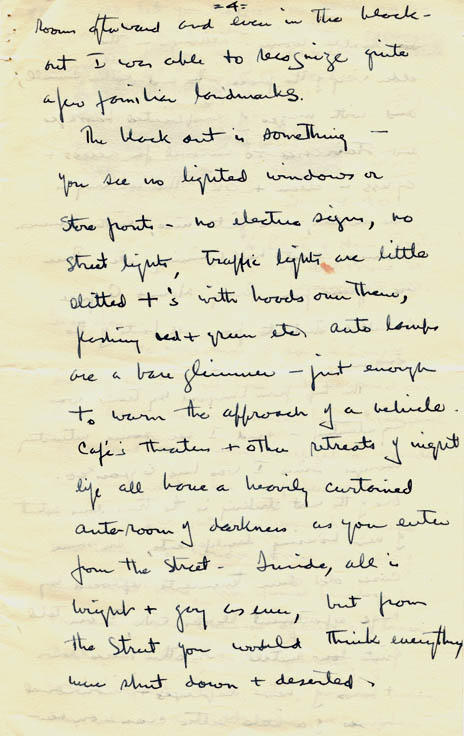 -4-
room afterward and even in the black-
out I was able to recognize quite
a few familiar landmarks.
The black out is something —
you see no lighted windows or
store fronts - no electric signs, no
street lights, traffic lights are little
slitted +'s with hoods over them,
flashing red + green etc. auto lamps
are a bare glimmer - just enough
to warn the approach of a vehicle.
Cafe's theaters + other retreats of night
life all have a heavily curtained
ante-room of darkness as you enter
from the street - Inside, all is
bright + gay as ever, but from
the street you would think everything
were shut down + deserted.